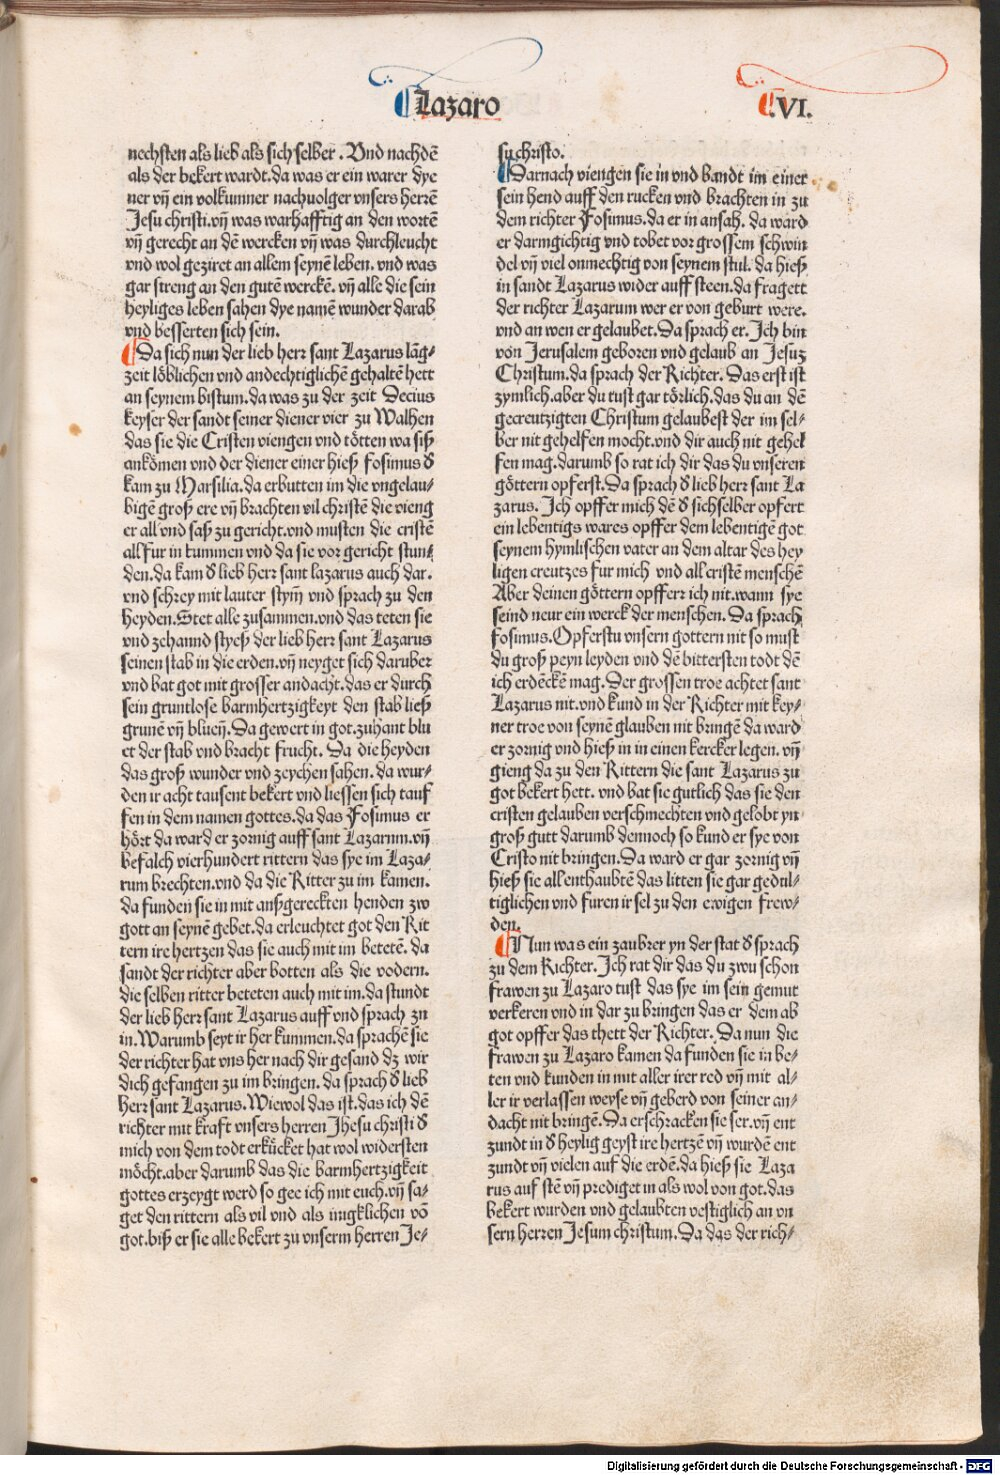 Lazaro
VI.
nechsten als lieb als sich selber. Vnd nachdē
als der bekert wardt. da was er ein warer dye
ner vñ ein volkumner nachuolger vnsers herrē
Jesu christi. vñ was warhafftig an den wortē
vñ gerecht an dē wercken vñ was durchleucht
vnd wol geziret an allem seynē leben. vnd was
gar streng an den gutē werckē. vñ alle die sein
heyliges leben sahen dye namē wunder darab
vnd besserten sich sein.
Da sich nun der lieb herr sant Lazarus lāg⸗
zeit löblichen vnd andechtiglichē gehaltē hett
an seynem bistum. da was zu der zeit Decius
keyser der sandt seiner diener vier zu Walhen
das sie die Cristen viengen vnd tötten wa siß
ankömen vnd der diener einer hieß Fosimus ď
kam zu Marsilia. da erbutten im die vngelau⸗
bigē groß ere vñ brachten vil christē die vieng
er all vnd saß zu gericht. vnd musten die cristē
all fur in kummen vnd da sie vor gericht stun⸗
den. da kam ď lieb herr sant lazarus auch dar.
vnd schrey mit lauter stym̄ vnd sprach zu den
heyden. Stet alle zusammen. vnd das teten sie
vnd zehannd styeß der lieb herr sant Lazarus
seinen stab in die erden. vñ neyget sich daruber
vnd bat got mit grosser andacht. das er durch
sein gruntlose barmhertzigkeyt den stab ließ
grunē vñ blueñ. Da gewert in got. zuhant blu
et der stab vnd bracht frucht. Da die heyden
das groß wunder vnd zeychen sahen. da wur⸗
den ir acht tausent bekert vnd liessen sich tauf
fen in dem namen gottes. da das Fosimus er
hört da ward er zornig auff sant Lazarum. vñ
befalch vierhundert rittern das sye im Laza⸗
rum brechten. vnd da die Ritter zu im kamen.
da funden sie in mit außgereckten henden zw
gott an seynē gebet. da erleuchtet got den Rit
tern ire hertzen das sie auch mit im betetē. da
sandt der richter aber botten als die vodern.
die selben ritter beteten auch mit im. da stundt
der lieb herr sant Lazarus auff vnd sprach zu
in. Warumb seyt ir her kummen. da sprachē sie
der richter hat vns her nach dir gesand dz wir
dich gefangen zu im bringen. da sprach ď lieb
herr sant Lazarus. Wiewol das ist. das ich dē
richter mit kraft vnsers herren Jhesu christi ď
mich von dem todt erkücket hat wol widersten
möcht. aber darumb das die barmhertzigkeit
gottes erzeygt werd so gee ich mit euch. vñ sa⸗
get den rittern als vil vnd als inigklichen vō
got. biß er sie alle bekert zu vnserm herren Je⸗
su christo.
Darnach viengen sie in vnd bandt im einer
sein hend auff den rucken vnd brachten in zu
dem richter Fosimus. da er in ansah. da ward
er darmgichtig vnd tobet vor grossem schwin
del vñ viel onmechtig von seynem stul. da hieß
in sandt Lazarus wider auff steen. da fragett
der richter Lazarum wer er von geburt were.
vnd an wen er gelaubet. Da sprach er. Jch bin
von Jerusalem geboren vnd gelaub an Jesuz
Christum. da sprach der Richter. Das erst ist
zymlich. aber du tust gar törlich. das du an dē
gecreutzigten Christum gelaubest der im sel⸗
ber nit gehelfen mocht. vnd dir auch nit gehel
fen mag. darumb so rat ich dir das du vnseren
göttern opferst. Da sprach ď lieb herr sant La
zarus. Jch opffer mich dē ď sich selber opfert
ein lebentigs wares opffer dem lebentigē got
seynem hymlischen vater an dem altar des hey
ligen creutzes fur mich vnd all cristē menschē
Aber deinen göttern opfferr ich nit. wann sye
seind neur ein werck der menschen. Da sprach
Fosimus. Opferstu vnsern gottern nit so must
du groß peyn leyden vnd dē bittersten todt dē
ich erdēckē mag. Der grossen troe achtet sant
Lazarus nit. vnd kund in der Richter mit key⸗
ner troe von seynē glauben nit bringē da ward
er zornig vnd hieß in in einen kercker legen. vñ
gieng da zu den Rittern die sant Lazarus zu
got bekert hett. vnd bat sie gutlich das sie den
cristen gelauben verschmechten vnd gelobt yn
groß gutt darumb dennoch so kund er sye von
Cristo nit bringen. Da ward er gar zornig vñ
hieß sie all enthaubtē das litten sie gar gedul⸗
tiglichen vnd furen ir sel zu den ewigen frew⸗
den.
Nun was ein zaubrer yn der stat ď sprach
zu dem Richter. Jch rat dir das du zwu schon
frawen zu Lazaro tust das sye im sein gemut
verkeren vnd in dar zu bringen das er dem ab
got opffer das thett der Richter. Da nun die
frawen zu Lazaro kamen da funden sie in be⸗
ten vnd kunden in mit aller irer red vñ mit al⸗
ler ir verlassen weyse vñ geberd von seiner an⸗
dacht nit bringē. Da erschracken sie ser. vñ ent
zundt in ď heylig geyst ire hertzē vñ wurdē ent
zundt vñ vielen auf die erdē. da hieß sie Laza
rus auf stē vñ prediget in als wol von got. das
bekert wurden vnd gelaubten vestiglich an vn
sern herren Jesum christum. Da das der rich⸗
Digitalisierung gefördert durch die Deutsche Forschungsgemeinschaft - DFG